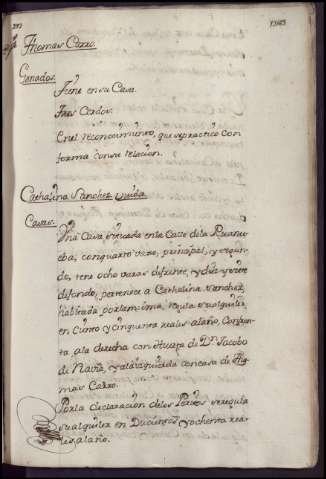 Thomas Cerro.
Ganados.
Tiene en su Casa.
Tres Cerdos.
En el reconocimiento, que se practicó con
forma con su relacion.
Cathalina Sanchez viuda.
Casas.
Una Casa situada en la Calle de la Rua nu-
eba, con quarto vajo, prinzipal, y segun-
do, tiene ocho varas de frente, y diez y siete
de fondo, pertenece a Cathalina Sanchez,
havitada por la misma, regula su alquiler
en ciento y cinquenta reales al año, Confron-
ta a la derecha con otra de Dn. Jacobo
de Navia, y a la izquierda con casa de Tho-
mas Cerro.
Por la declarazion de los Peritos se regula
su alquiler en Ducientos y ochenta rea-
les al año.